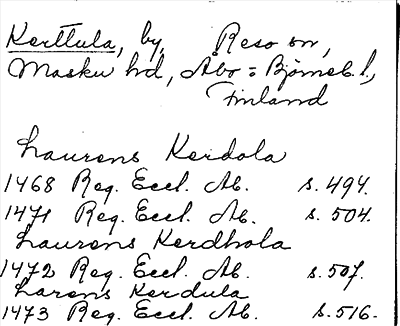 Kerttula, by, Reso sn,
Masku hd, Åbo = Björneb. l.,
Finland
Laurens Kerdola
1468 Reg. Eccl. Ab. s. 494.
1471 Reg. Eccl. Ab. s. 504.
Laurens Kerdhola
1472 Reg. Eccl. Ab. s. 507.
Larens Kerdula
1473 Reg. Eccl. Ab. s. 516.